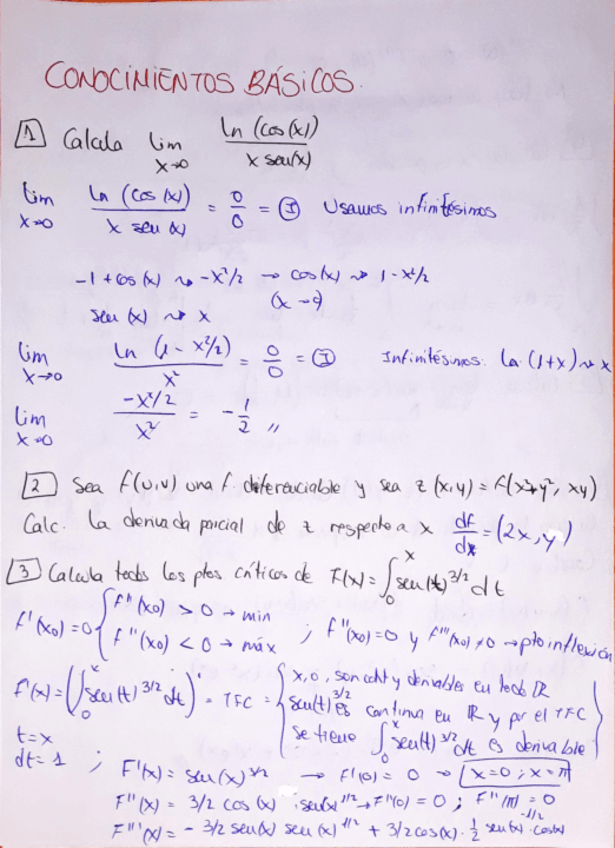 CONOCIMIENTOS BÁSICOS.
1 Calcula lim x→0 ln (cos(x)) / x sen(x)
lim x→0 ln (cos (x)) / x sen (x) = 0/0 = I Usamos infinitésimos
-1 + cos (x) ~ -x²/2 → cos(x) ~ 1 - x²/2
sen (x) ~ x (x→0)
lim x→0 ln (1 - x²/2) / x² = 0/0 = I Infinitésimos: ln (1+x) ~ x
lim x→0 -x²/2 / x² = -1/2 //
2 Sea f(u,v) una f. diferenciable y sea z (x,y) = f(x²+y², xy)
Calc. la derivada parcial de z respecto a x df/dx = (2x, y)
3 Calcula todos los ptos críticos de F(x) = ∫₀ˣ sen(t)^3/2 dt
f'(x₀)=0 { f''(x₀) > 0 → min
f''(x₀) < 0 → máx ; f''(x₀)=0 y f'''(x₀)≠0 → pto inflexión
F'(x) = (∫₀ˣ sen(t)^3/2 dt)' = TFC = { x, 0, son cont y derivables en todo ℝ
sen(t)^3/2 es continua en ℝ y por el TFC
se tiene ∫₀ˣ sen(t)^3/2 dt es derivable }
t=x
dt=1 ; F'(x) = sen(x)^3/2 → F'(0) = 0 → x=0 ; x=π
F''(x) = 3/2 cos (x) · sen(x)^1/2 → F''(0) = 0 ; F''(π) = 0
F'''(x) = - 3/2 sen(x) sen(x)^1/2 + 3/2 cos(x) · 1/2 sen(x)^-1/2 · cos(x)